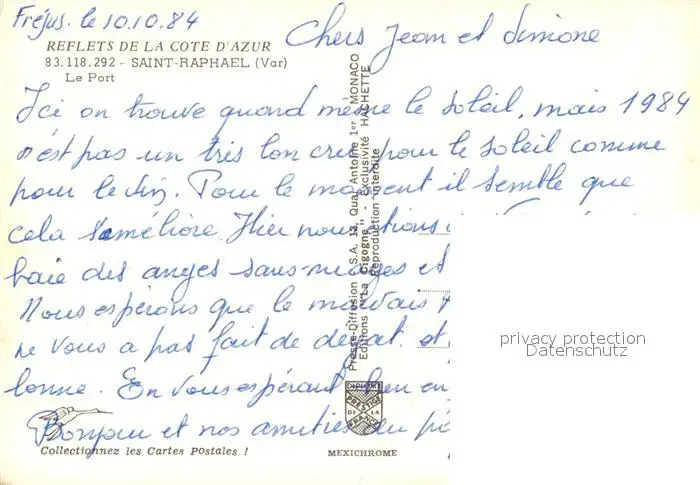 Fréjus. le 10.10.84
Chers Jean et Simone
REFLETS DE LA COTE D'AZUR
83.118.292 - SAINT-RAPHAEL (Var)
Le Port
Ici on trouve quand même le soleil, mais 1984
n'est pas un très bon cru pour le soleil comme
pour le vin. Pour le moment il semble que
cela s'améliore. Hier nous étions
baie des anges sans nuages et
Nous espérons que le mauvais
ne vous a pas fait de dégat. et
bonne. En vous espérant bien en
Bonjour et nos amitiés au
Collectionnez les Cartes Postales !
MEXICHROME
DIPLOME
PRESTIGE
DE LA
FRANCE
Presse-Diffusion S.A. 12, Quai Antoine 1er MONACO
Editions "La Cigogne" - Exclusivité HACHETTE
Reproduction interdite
privacy protection
Datenschutz